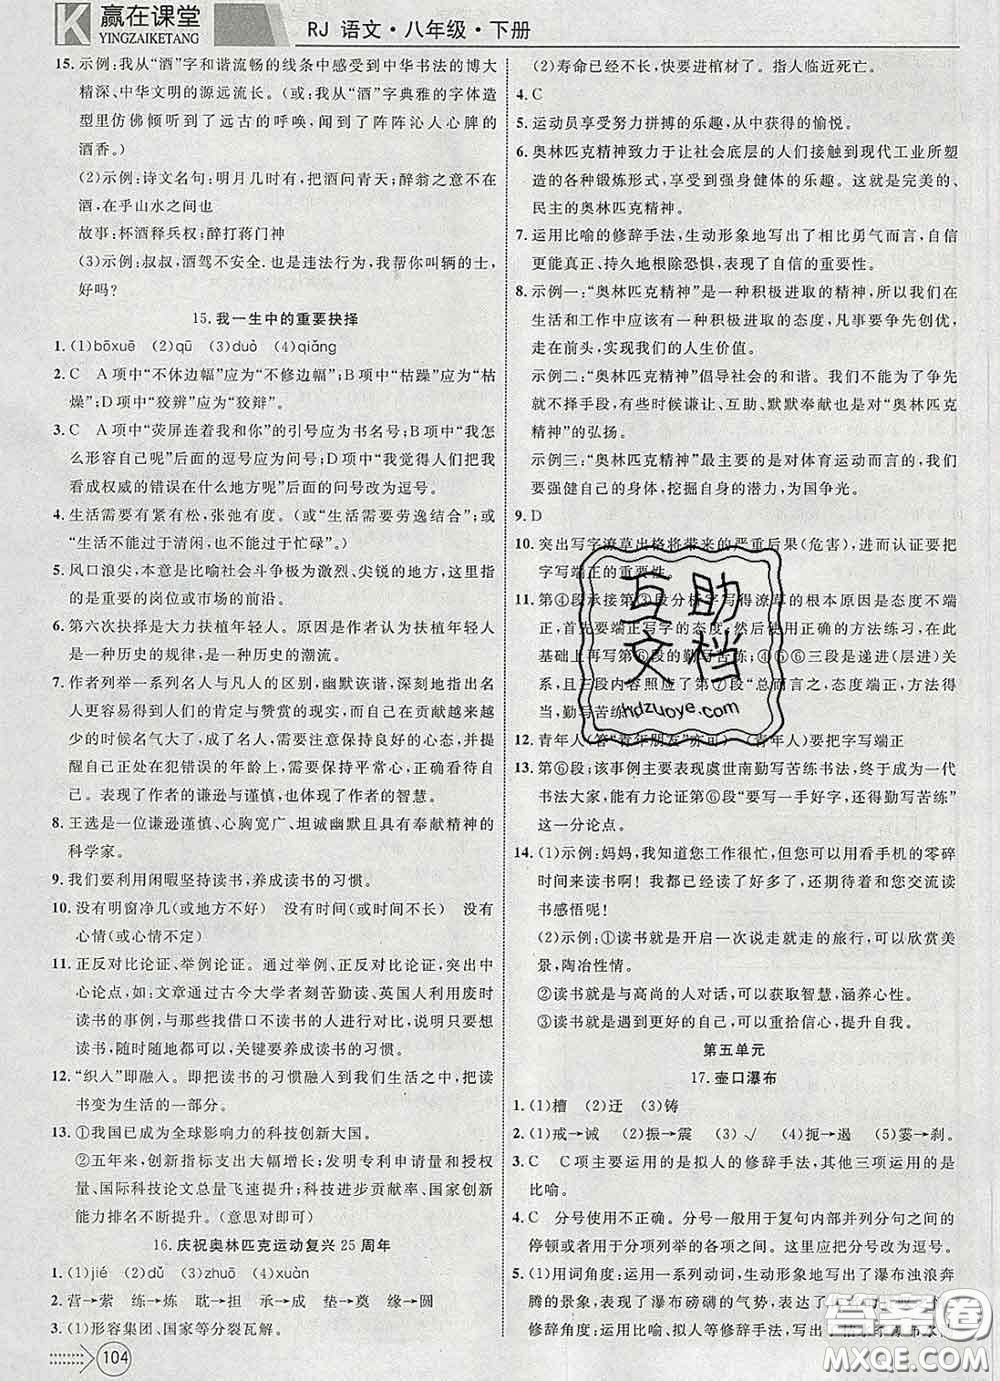 赢在课堂
YINGZAIKETANG
RJ 语文·八年级·下册
15. 示例:我从“酒”字和谐流畅的线条中感受到中华书法的博大
精深、中华文明的源远流长。(或:我从“酒”字典雅的字体造
型里仿佛倾听到了远古的呼唤,闻到了阵阵沁人心脾的
酒香。)
(2)示例:诗文名句:明月几时有,把酒问青天;醉翁之意不在酒,
在乎山水之间也
故事:杯酒释兵权;醉打蒋门神
(3)示例:叔叔,酒驾不安全.也是违法行为,我帮你叫辆的士,
好吗?
15.我一生中的重要抉择
1. (1)bōxuē (2)qū (3)duò (4)qiāng
2. C A项中“不休边幅”应为“不修边幅”;B项中“枯躁”应为“枯
燥”;D项中“狡辨”应为“狡辩”。
3. C A项中“荧屏连着我和你”的引号应为书名号;B项中“我怎
么形容自己呢”后面的逗号应为问号;D项中“我觉得人们把我
看成权威的错误在什么地方呢”后面的问号改为逗号。
4. 生活需要有紧有松,张弛有度。(或“生活需要劳逸结合”;或
“生活不能过于清闲,也不能过于忙碌”。)
5. 风口浪尖,本意是比喻社会斗争极为激烈、尖锐的地方,这里指
的是重要的岗位或市场的前沿。
6. 第六次抉择是大力扶植年轻人。原因是作者认为扶植年轻人
是一种历史的规律,是一种历史的潮流。
7. 作者列举一系列名人与凡人的区别,幽默诙谐,深刻地指出名
人更容易得到人们的肯定与赞赏的现实,而自己在贡献越来越
少的时候名气大了,成了名人,需要保持良好的心态,并且提
醒自己正处在犯错误的年龄上,需要保持平常心,正确面对自
己。表现了作者的谦逊与谨慎,也体现了作者的智慧。
8. 王选是一位谦逊谨慎、心胸宽广、坦诚幽默且具有奉献精神的
科学家。
9. 我们要利用闲暇坚持读书,养成读书的习惯。
10. 没有明窗净几(或地方不好) 没有时间(或时间不长) 没有
心情(或心情不定)
11. 正反对比论证、举例论证。通过举例、正反对比论证,突出中
心论点,如:文章通过古今大学者刻苦勤读、英国人利用废时
读书的事例,与那些找借口不读书的人进行对比,突出要坚持
读书,随时随地可以读书,关键要养成读书的习惯。
12. “织人”即融人。即把读书的习惯融入到生活之中,把读
书变为生活的一部分。
13. ①我国已成为全球影响力的科技创新大国。
②五年来,创新指标支出大幅增长;发明专利申请量和授权
量、国际科技论文总量飞速提升;科技进步贡献率、国家创新
能力排名不断提升。(意思对即可)
16.庆祝奥林匹克运动复兴25周年
1. (1)jié (2)dǔ (3)zhuō (4)xuàn
2. 营→萦 练→炼 耽→担 承→成 垫→奠 缘→圆
3. (1)形容集团、国家等分裂瓦解。
104
(2)寿命已经不长,快要进棺材了。指人临近死亡。
4. C
5. 运动员享受努力拼搏的乐趣,从中获得的愉悦。
6. 奥林匹克精神致力于让社会底层的人们接触到现代工业所塑
造的各种锻炼形式,享受到强身健体的乐趣。这就是完美的、
民主的奥林匹克精神。
7. 运用比喻的修辞手法,生动形象地写出了相比勇气而言,自信
更能真正、持久地根除恐惧,表现了自信的重要性。
8. 示例一:“奥林匹克精神”是一种积极进取的精神。我们在
生活和工作中应该有一种积极进取的态度,凡事要争先创优,
走在前头,实现我们的人生价值。
示例二:“奥林匹克精神”倡导社会的和谐。我们不能为了争先
就不择手段,有些时候谦让、互助、默默奉献也是对“奥林匹克
精神”的弘扬。
示例三:“奥林匹克精神”最主要的是对体育运动而言的,我们
要强健自己的身体,挖掘自身的潜力,为国争光。
9. D
10. 突出写字潦草出格将带来的严重后果(危害),进而认证要把
字写端正的重要性。
11. 第④段承接第③段分析字写得潦草的根本原因是态度不端
正,首先要端正写字的态度;然后用正确的方法练习,在此
基础上再写勤写苦练;④⑤⑥三段是递进(层进)关系。
三段内容照应了第⑦段“总而言之,态度端正,方法得
当,勤写苦练”。
12. 青年人(答“青年朋友”亦可) (青年人)要把字写端正
13. 第⑥段;该事例主要表现虞世南勤写苦练书法,终于成为一代
书法大家,能有力论证第⑥段“要写一手好字,还得勤写苦练”
这一分论点。
14. (1)示例:妈妈,我知道您工作很忙,但您可以用看手机的零碎
时间来读书啊!我都已经读了好多了,期待着和您交流读
书感悟呢!
(2)示例:①读书就是开启一次说走就走的旅行,可以欣赏美
景,陶冶性情。
②读书就是与高尚的人对话,可以获取智慧,涵养心性。
③读书就是遇到更好的自己,可以重拾信心,提升自我。
第五单元
17.壶口瀑布
1. (1)槽 (2)迂 (3)铸
2. (1)戒→诫 (2)振→震 (3)√ (4)扼→遏 (5)蒌→刹.
3. C C项主要运用的是拟人的修辞手法,其他三项运用的是
比喻。
4. C 分号使用不正确。分号一般用于复句内部并列分句之间的
停顿或者用于分项列举的各项之间。这里应该用逗号。
5. (1)用词角度:运用一系列动词,生动形象地写出了瀑布浊浪奔
腾的景象,表现了瀑布磅礴的气势,
互助
文档
hdzuoye.com
答案圈
MXQE.COM